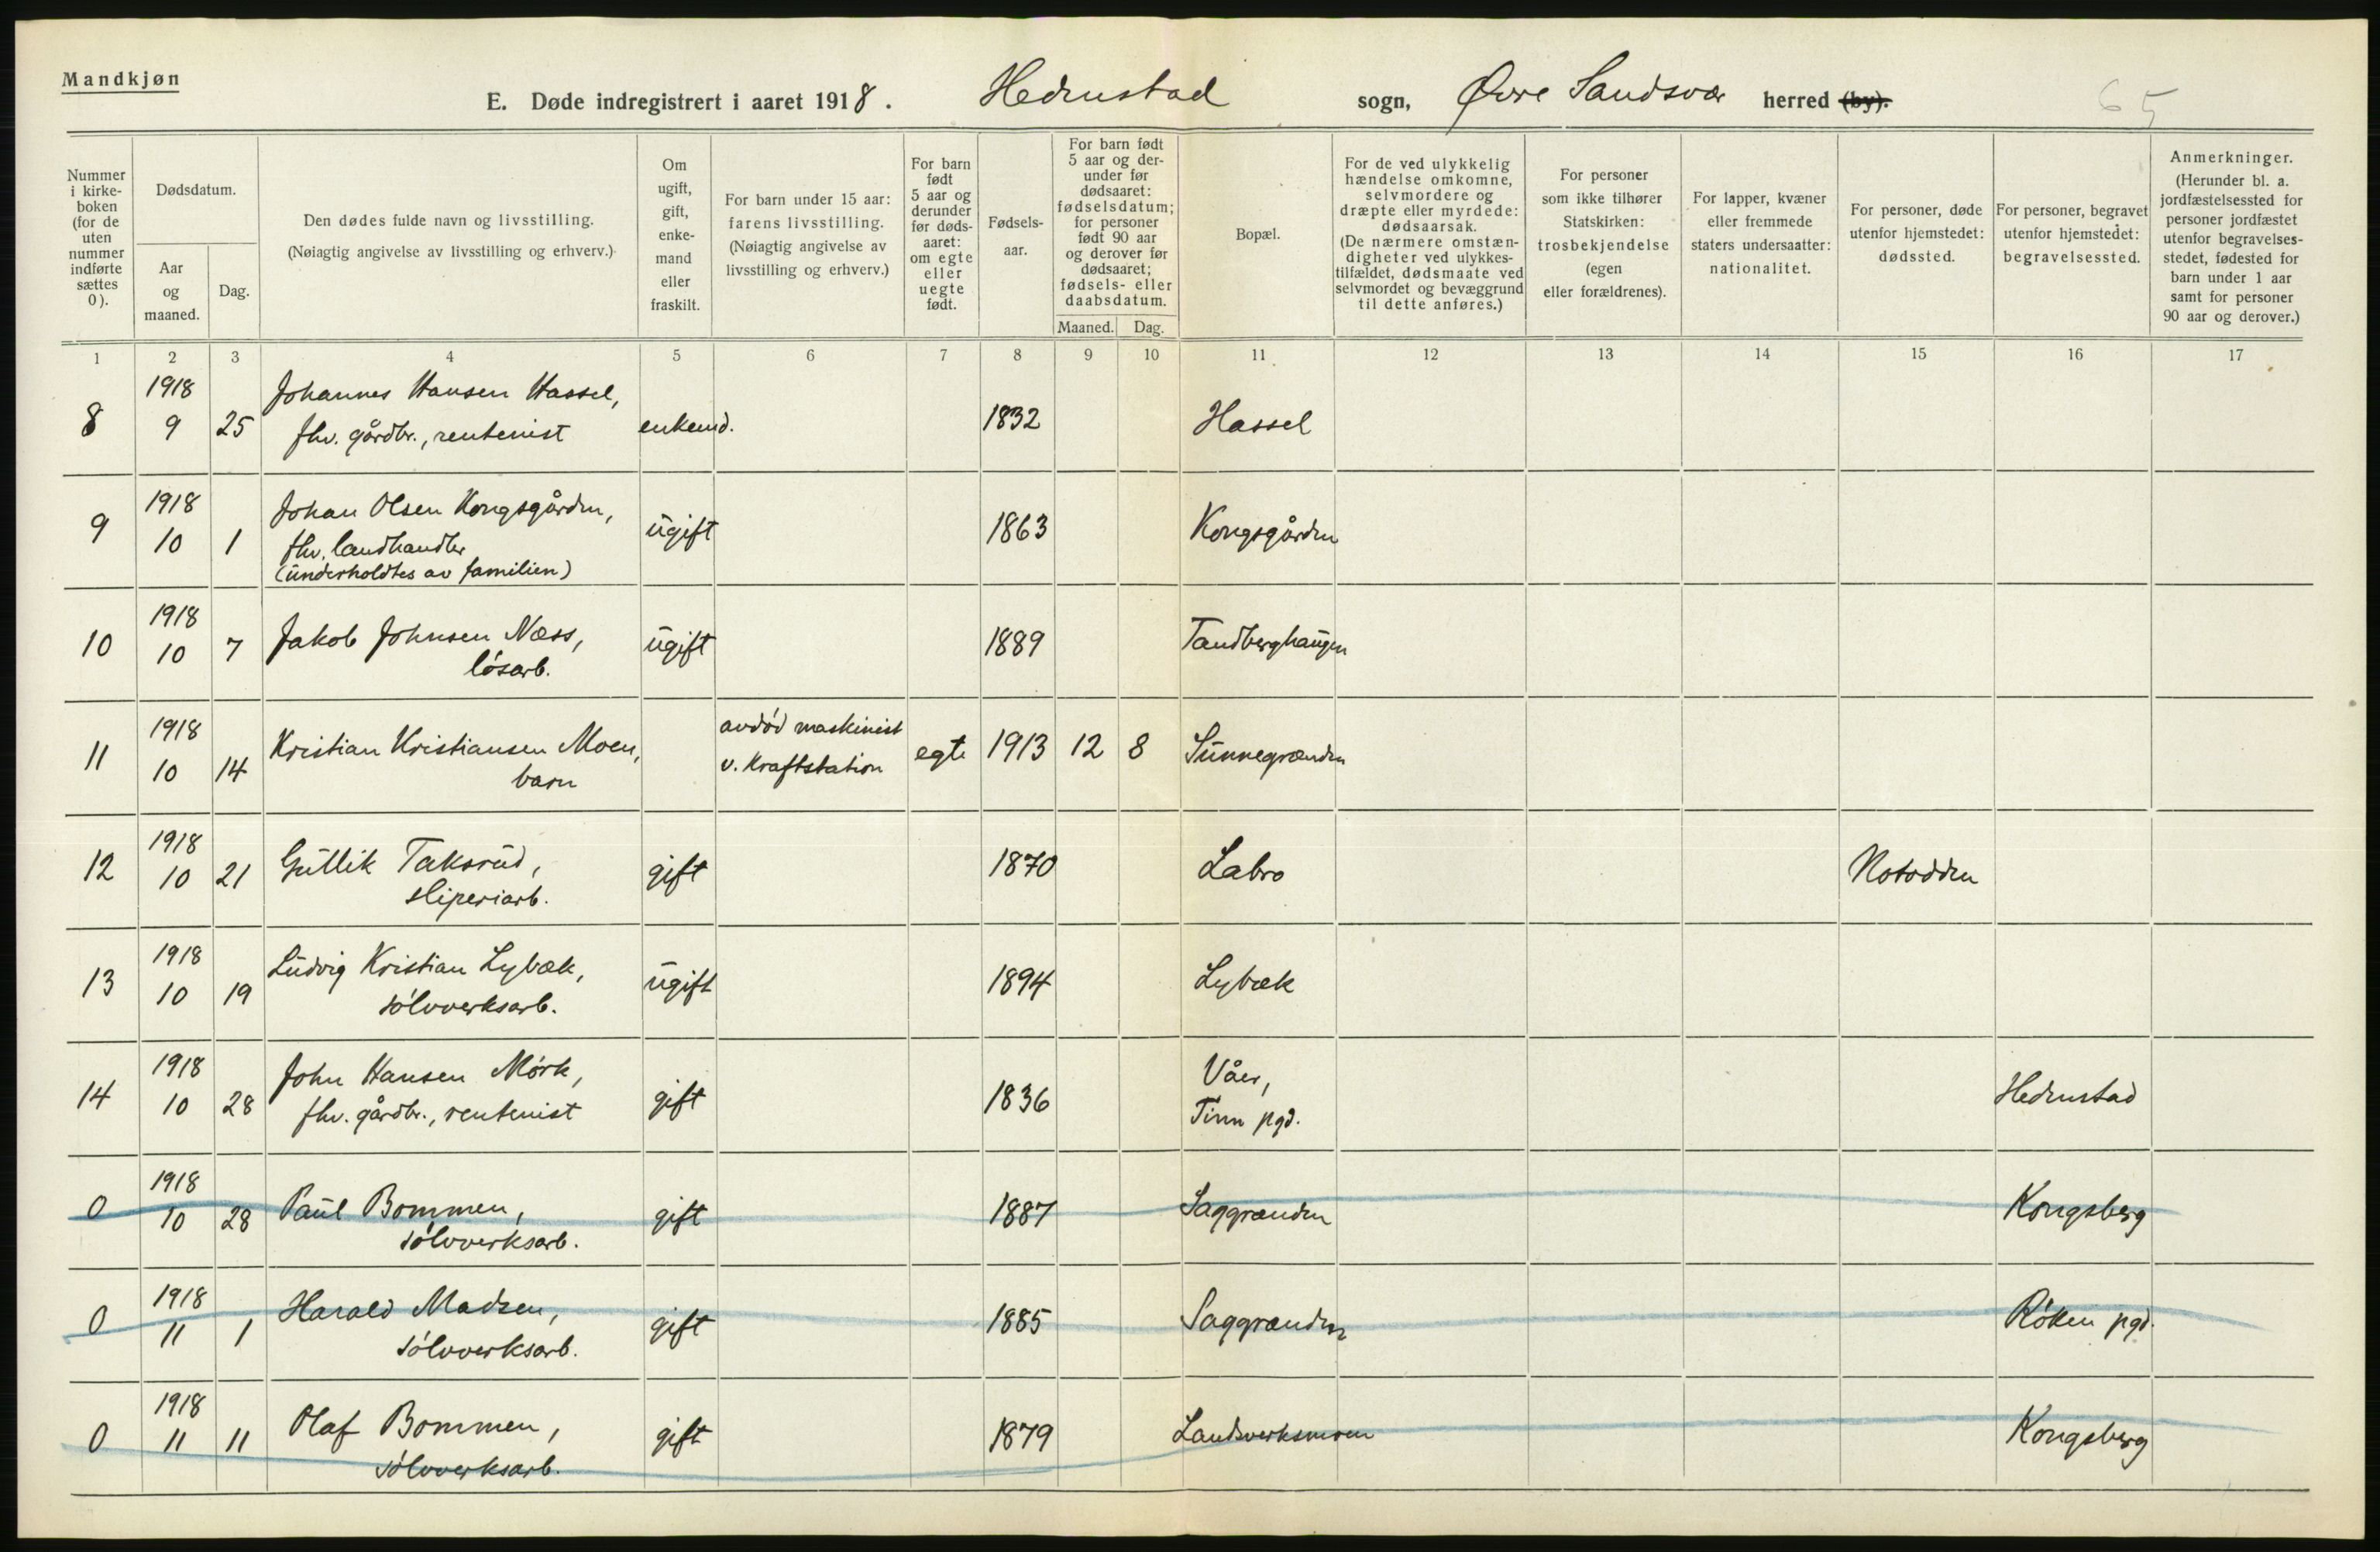 Mandkjøn
E. Døde indregistrert i aaret 1918. Hedenstad sogn, Øvre Sandsvær herred (by).
65
Nummer i kirke-boken (for de uten nummer indførte sættes 0).
Dødsdatum.
Aar og maaned.
Dag.
Den dødes fulde navn og livsstilling.
(Nøiagtig angivelse av livsstilling og erhverv.)
Om ugift, gift, enke-mand eller fraskilt.
For barn under 15 aar: farens livsstilling.
(Nøiagtig angivelse av livsstilling og erhverv.)
For barn født 5 aar og derunder før døds-aaret: om egte eller uegte født.
Fødsels-aar.
For barn født 5 aar og der-under før dødsaaret: fødselsdatum; for personer født 90 aar og derover før dødsaaret; fødsels- eller daabsdatum.
Maaned. Dag.
Bopæl.
For de ved ulykkelig hændelse omkomne, selvmordere og dræpte eller myrdede: dødsaarsak.
(De nærmere omstæn-digheter ved ulykkes-tilfældet, dødsmaate ved selvmordet og bevæggrund til dette anføres.)
For personer som ikke tilhører Statskirken: trosbekjendelse (egen eller forældrenes).
For lapper, kvæner eller fremmede staters undersaatter: nationalitet.
For personer, døde utenfor hjemstedet: dødssted.
For personer, begravet utenfor hjemstedet: begravelsessted.
Anmerkninger.
(Herunder bl. a. jordfæstelsessted for personer jordfæstet utenfor begravelses-stedet, fødested for barn under 1 aar samt for personer 90 aar og derover.)
1 2 3 4 5 6 7 8 9 10 11 12 13 14 15 16 17
1918 Johannes Hansen Hassel,
8 9 25 fhv. gårdbr., rentenist enkemd. 1832 Hassel
1918 Johan Olsen Kongsgården,
9 10 1 fhv. landhandler ugift 1863 Kongsgården
(underholdtes av familien)
1918
10 10 7 Jakob Johnsen Næss, ugift 1889 Tandberghaugen
løsarb.
1918 avdød maskinist
11 10 14 Kristian Kristiansen Moen, v. Kraftstation egte 1913 12 8 Sunnegrenden
barn
1918
12 10 21 Gullik Taksrud, gift 1870 Labro Notodden
sliperiarb.
1918
13 10 19 Ludvig Kristian Lybæk, ugift 1894 Lybæk
sølvverksarb.
1918 John Hansen Mørk, Våer,
14 10 28 fhv. gårdbr., rentenist gift 1836 Tinn pgd. Hedenstad
1918
0 10 28 Paul Bommen, gift 1887 Saggrenden Kongsberg
sølvverksarb.
1918
0 11 1 Harald Madsen, gift 1885 Saggrenden Røken pgd.
sølvverksarb.
1918
0 11 11 Olaf Bommen, gift 1879 Landsverksmoen Kongsberg
sølvverksarb.